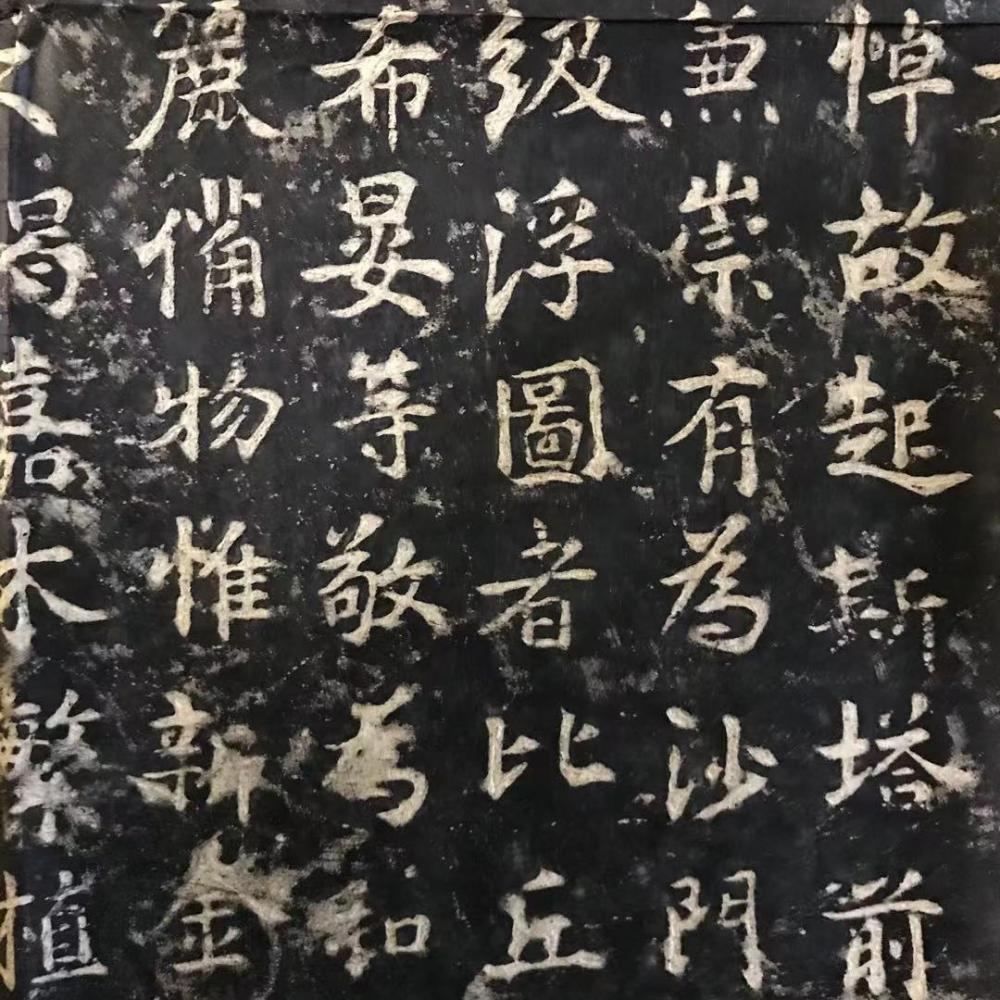 悼故起斯塔前
兼崇有為沙門
級浮圖者比丘
希晏等敬為和
麗備物惟新金
曷喜木檠植